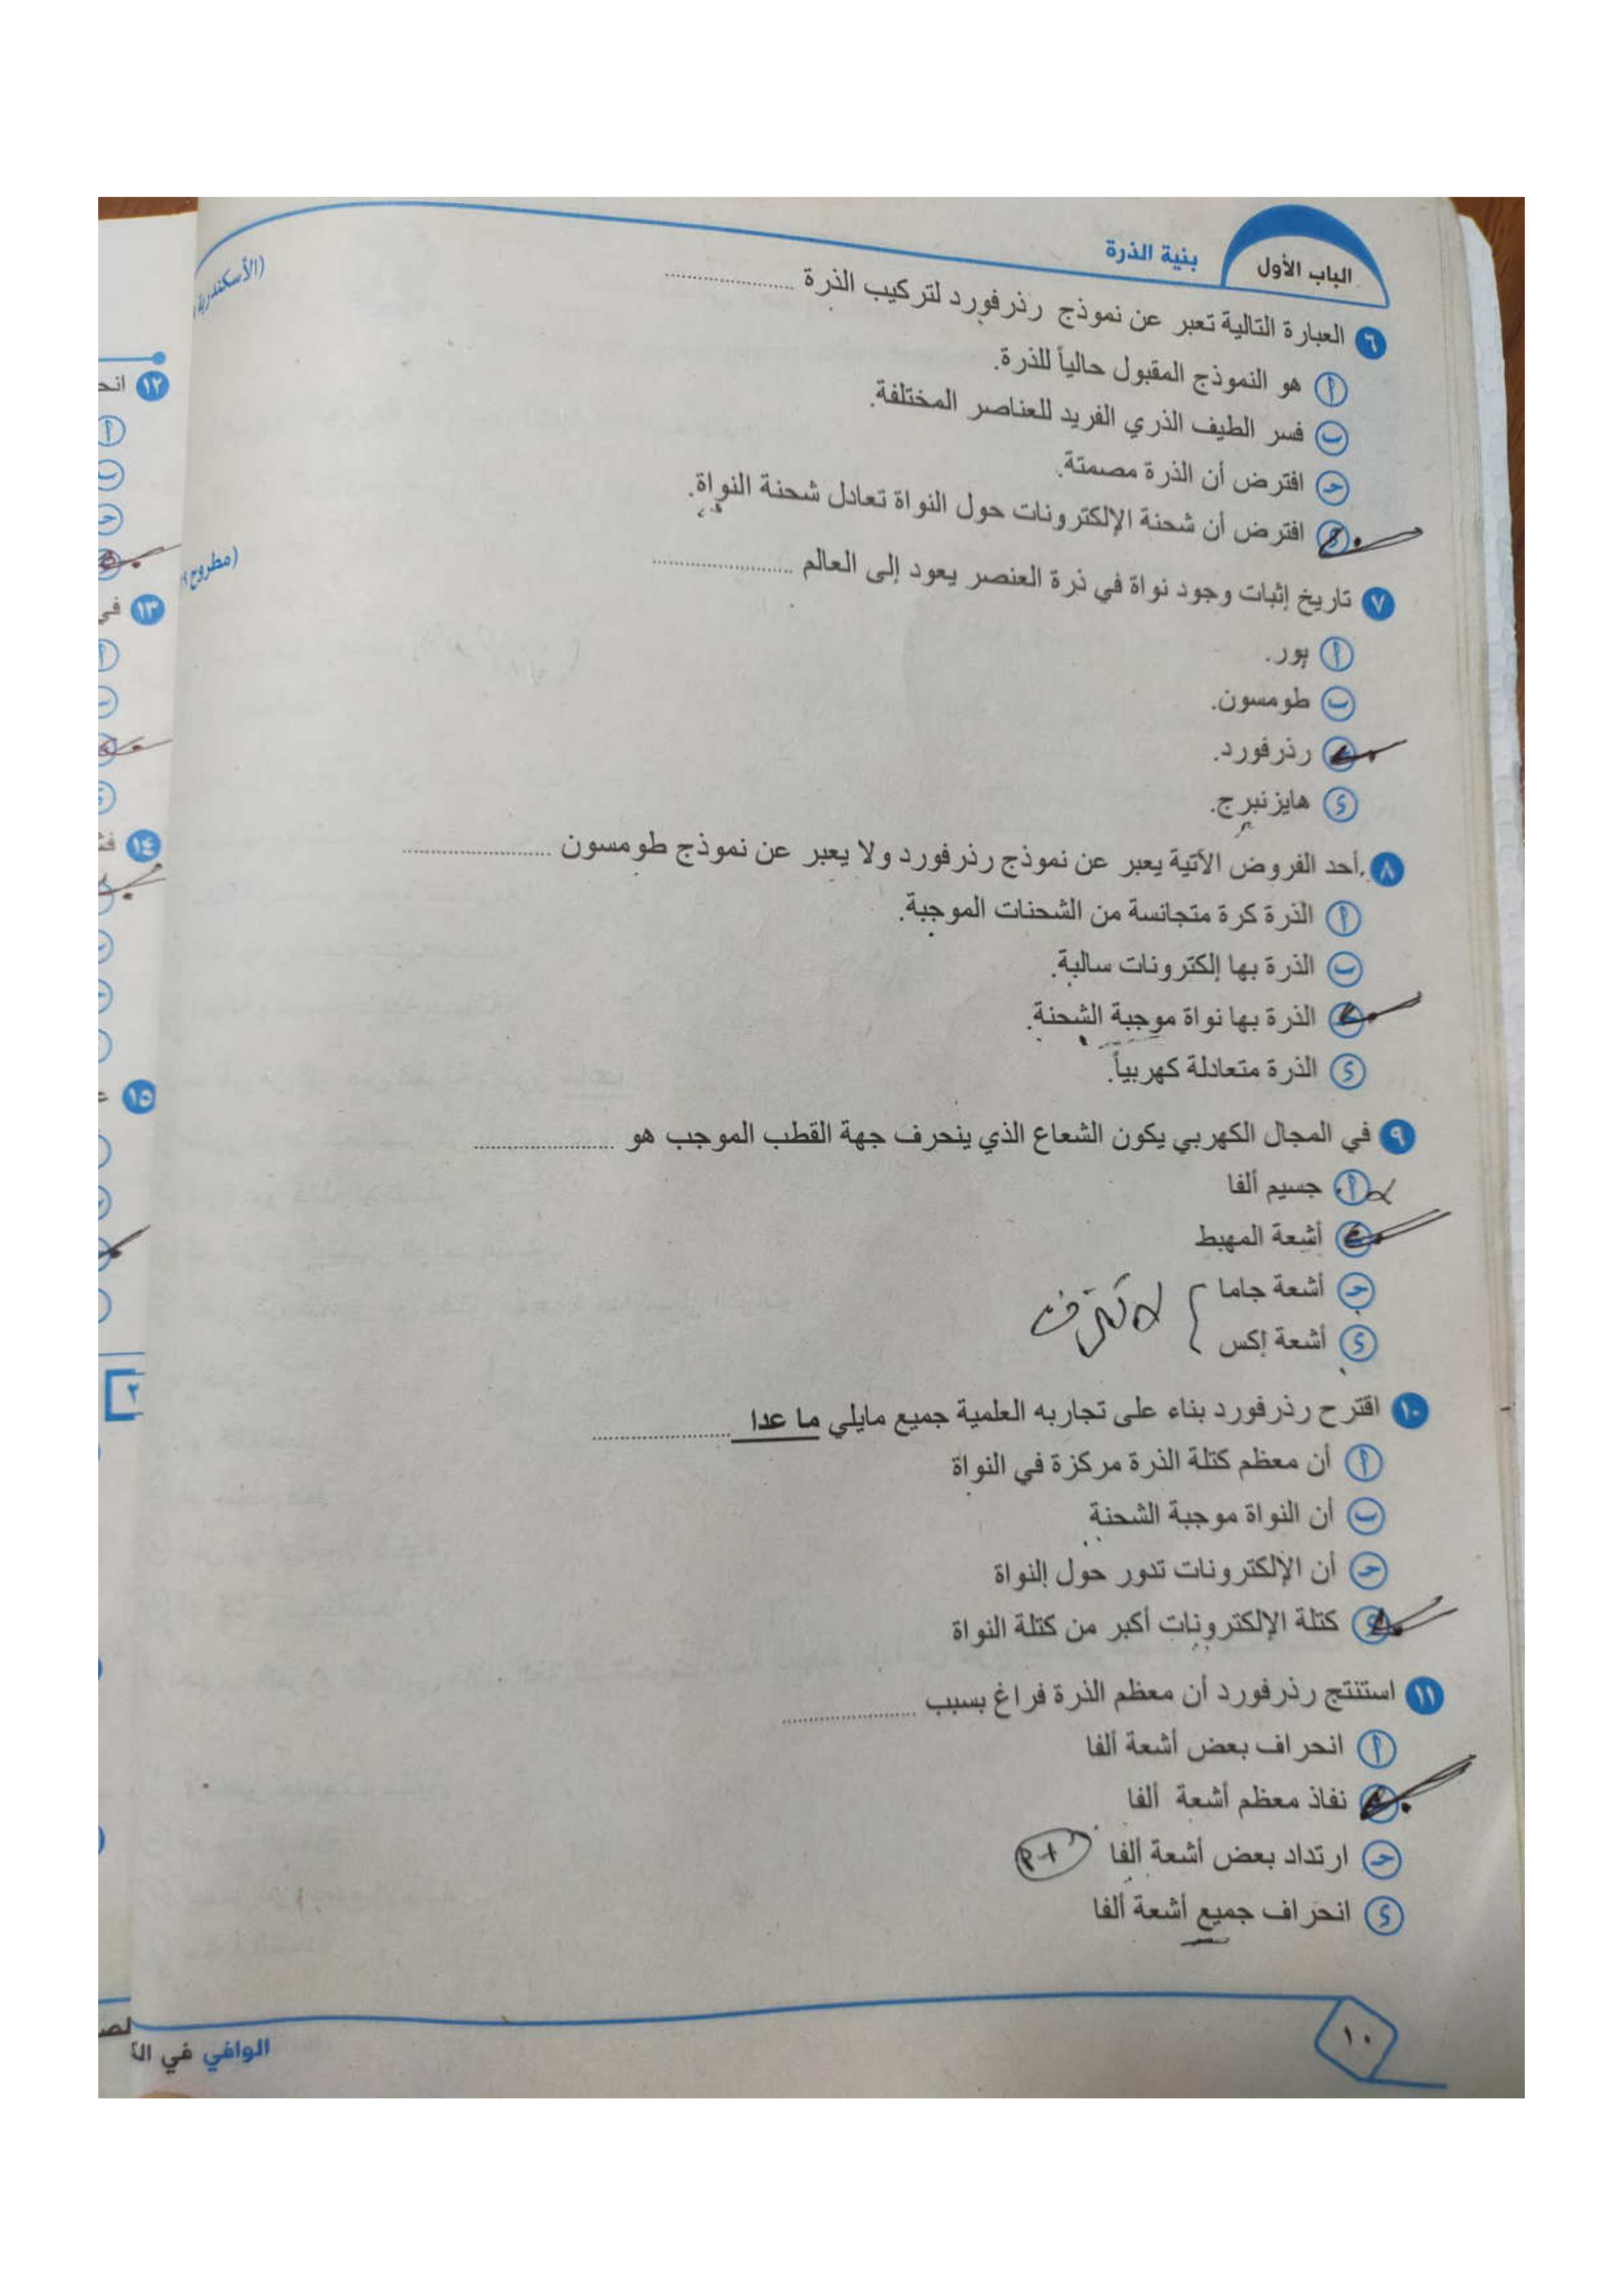 الباب الأول
بنية الذرة
٦ العبارة التالية تعبر عن نموذج رذرفورد لتركيب الذرة ....................
(الأسكندرية
أ هو النموذج المقبول حالياً للذرة.
ب فسر الطيف الذري الفريد للعناصر المختلفة.
ج افترض أن الذرة مصمتة.
د افترض أن شحنة الإلكترونات حول النواة تعادل شحنة النواة.
٧ تاريخ إثبات وجود نواة في ذرة العنصر يعود إلى العالم ....................
(مطروح
أ بور.
ب طومسون.
ج رذرفورد.
د هايزنبرج.
٨ أحد الفروض الآتية يعبر عن نموذج رذرفورد ولا يعبر عن نموذج طومسون ....................
أ الذرة كرة متجانسة من الشحنات الموجبة.
ب الذرة بها إلكترونات سالبة.
ج الذرة بها نواة موجبة الشحنة.
د الذرة متعادلة كهربياً.
٩ في المجال الكهربي يكون الشعاع الذي ينحرف جهة القطب الموجب هو ....................
أ جسيم ألفا
ب أشعة المهبط
ج أشعة جاما
د أشعة إكس
١٠ اقترح رذرفورد بناء على تجاربه العلمية جميع مايلي ما عدا ....................
أ أن معظم كتلة الذرة مركزة في النواة
ب أن النواة موجبة الشحنة
ج أن الإلكترونات تدور حول النواة
د كتلة الإلكترونات أكبر من كتلة النواة
١١ استنتج رذرفورد أن معظم الذرة فراغ بسبب ....................
أ انحراف بعض أشعة ألفا
ب نفاذ معظم أشعة ألفا
ج ارتداد بعض أشعة ألفا
د انحراف جميع أشعة ألفا
١٠
الوافي في
١٢
١٣ في
١٤
١٥
٢